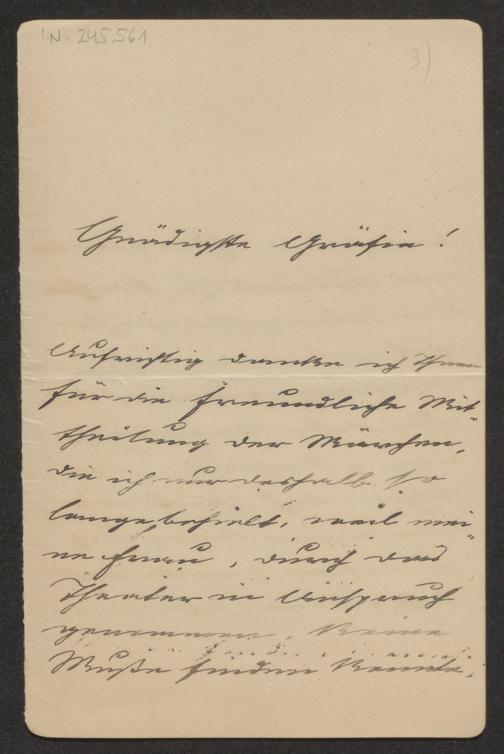 I.N. 245.561
3)
Gnädigste Gräfin!
Aufrichtig danke ich Ihnen
für die freundliche Mit-
theilung der Märchen,
die ich nur deshalb so
lange behielt, weil mei-
ne Frau, durch das
Theater in Anspruch
genommen, keine
Muße finden konnte,